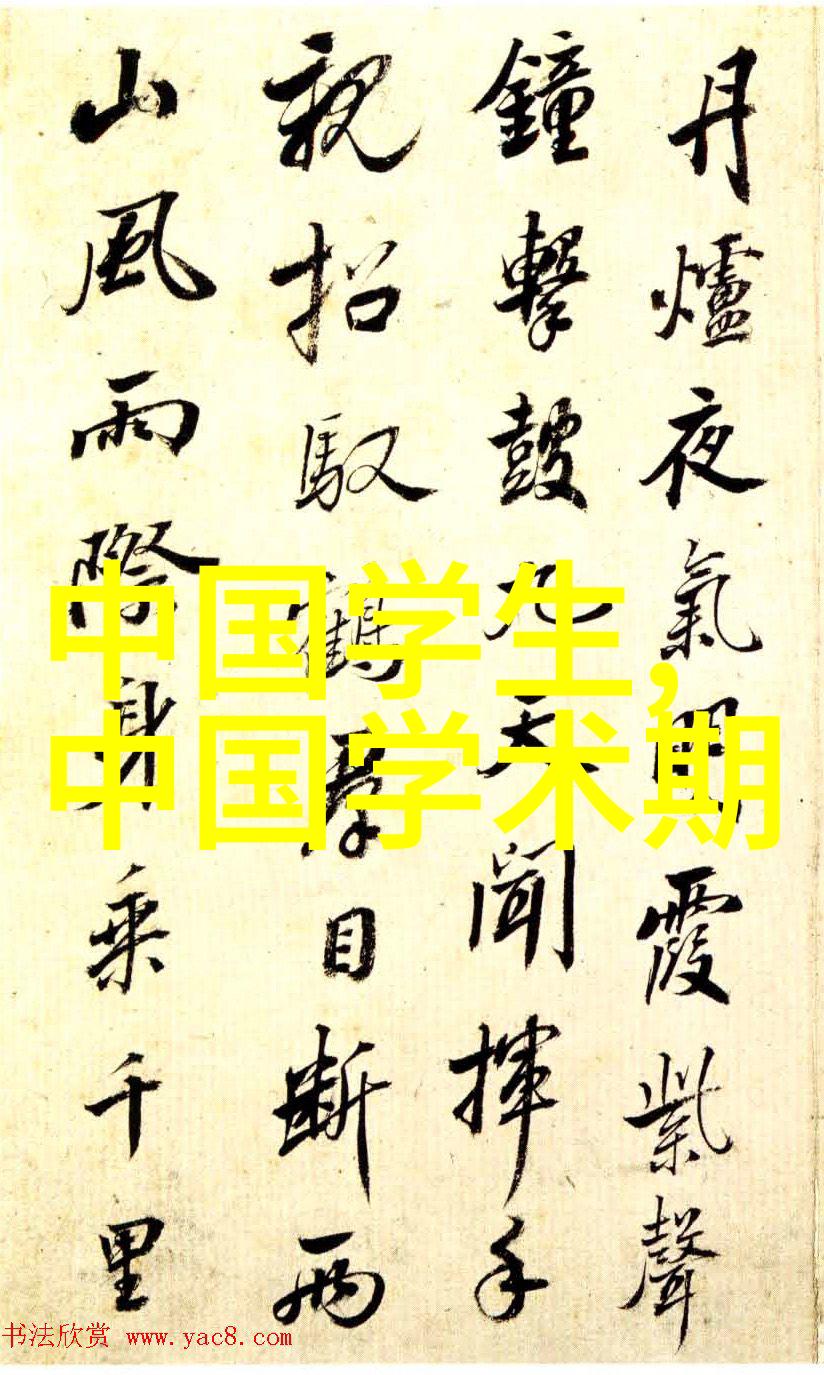 丹爐夜氣明霞紫聲
鐘擊鼓九天聞揮手
親招馭鶴羣目斷兩
山風雨際身乘千里
中国学生,
中国学术期
书法欣赏 www.yac8.com